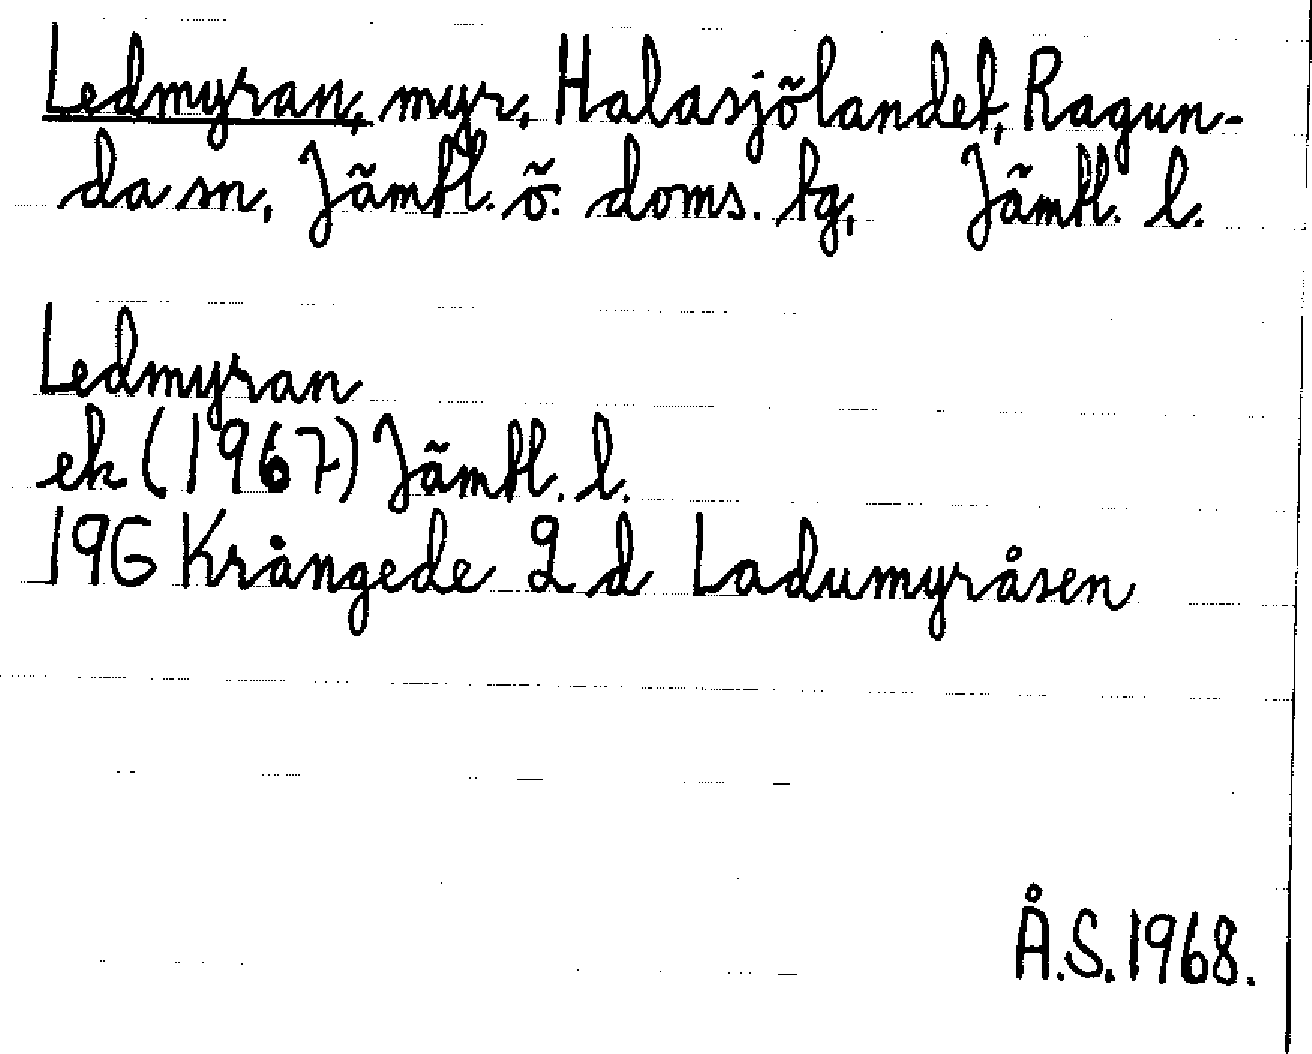 Ledmyran, myr, Halasjölandet, Ragun-
da sn, Jämtl. ö. doms. tg, Jämtl. l.
Ledmyran
ek (1967) Jämtl. l.
19G Krångede 2 d Ladumyråsen
Å.S. 1968.